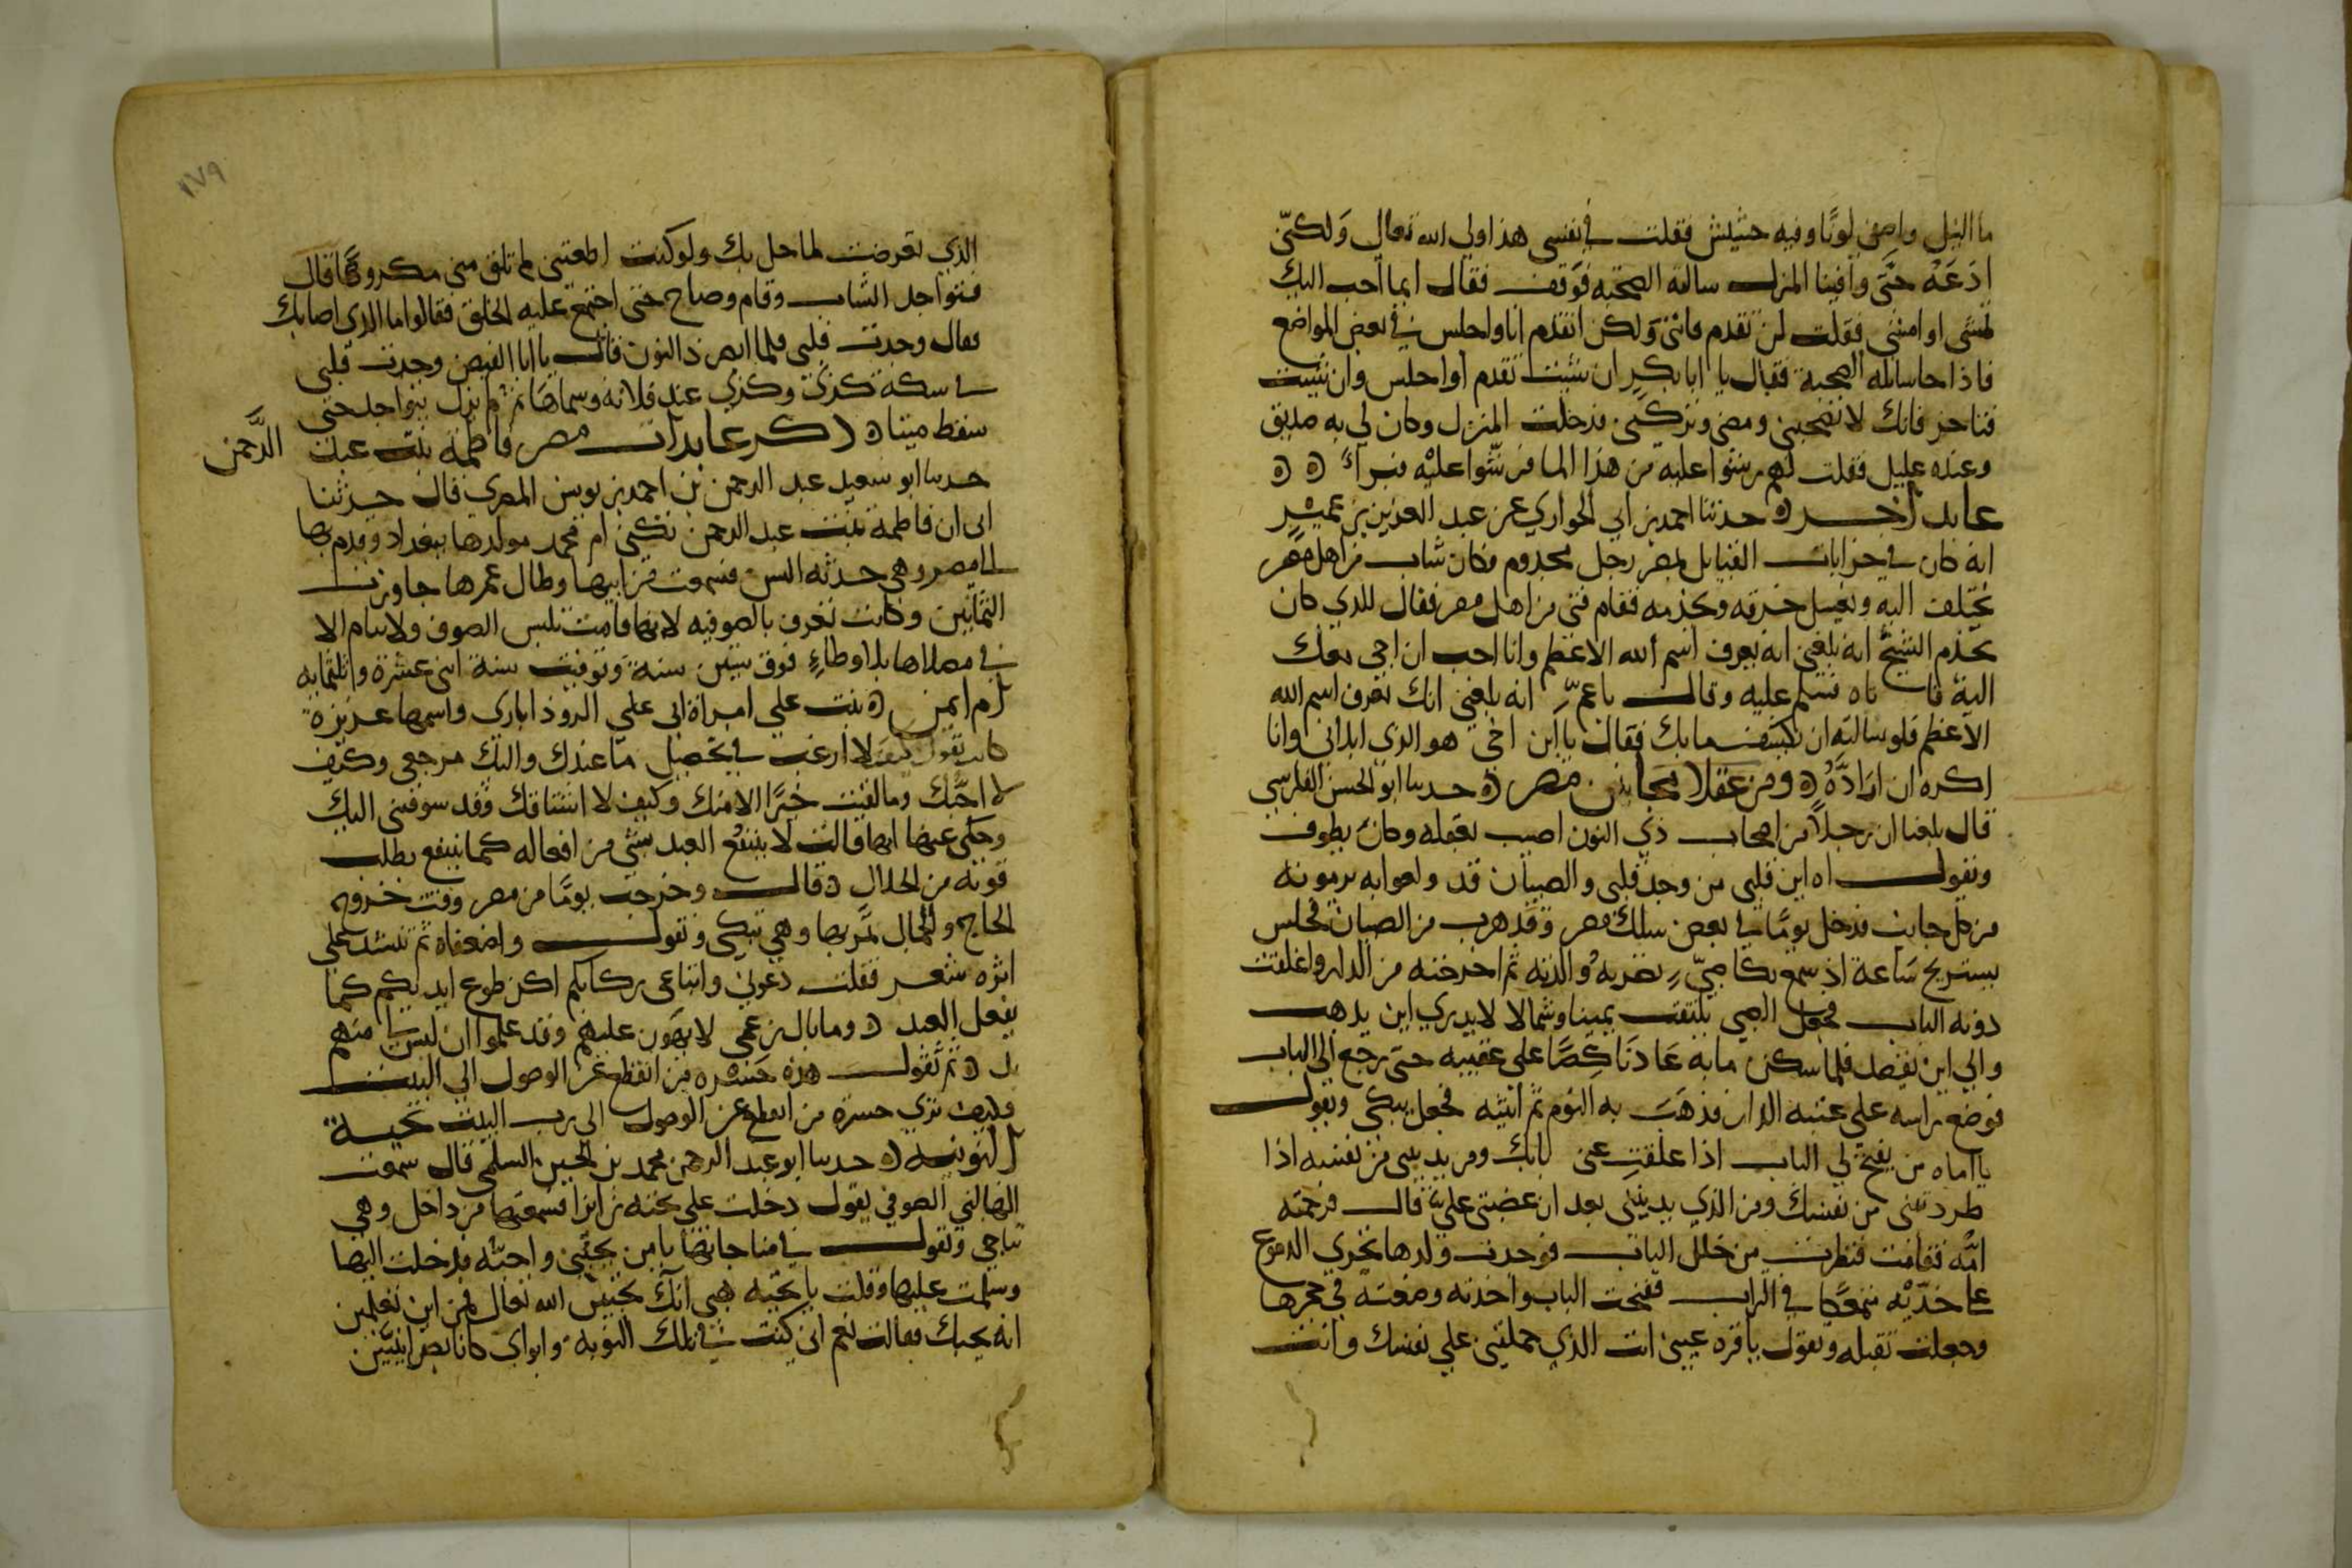 ما النيل واصفى لونا وفيه حشيش فقلت في نفسي هذا ولي الله تعالى وَلكنّي
ادَعَهُ حتَّى وافينا المنزل سالته الصحبة فوَقف فقال ايما احب اليك
تمشى او امشى فقلت لن تقدم فاتني وَلكن اتقدم انا واجلس في بعض المواضع
فاذا جا سالته الصحبة فقال يا ابا بكر ان شئت تقدم أو اجلس وان شئت
فتاخر فانك لا تصحبني ومضى وتركني فدخلت المنزل وكان لي به صديق
وعنده عليل فقلت لهم رشوا عليه من هذا الما فرشّوا عليْه فبرأ
عابد آخر حدثنا احمد بن ابي الحواري عن عبد العزيز بن عمير
انه كان في خرابات القبايل بمصر رجل مجذوم وكان شاب من اهل مصر
يختلف اليه ويغسل خرقه ويخدمه فقام فتى من اهل مصر فقال للذي كان
يخدم الشيخ انه بلغني انه يعرف اسم الله الاعظم وانا احب ان اجي معك
اليه فا تاه فسلم عليه وقال يا عمّ انه بلغني انك تعرف اسم الله
الاعظم فلو سالته ان يكشف ما بك فقال يا ابن اخي هو الذي ابلاني وانا
اكره ان ارَادّهُ ومن عقلا مجانين مصر حدثنا ابو الحسن الفارسي
قال بلغنا ان رجلاً من اصحاب ذي النون اصيب بعقله وكان يطوف
ويقول اه اين قلبي من وجد قلبي والصبيان قد ولعوا به يرمونه
من كل جانب فدخل يومًا في بعض سكك مصر وَقد هرب من الصبيان فجلس
يستريح ساعة اذ سمع بكا صبيّ تضربهُ والدته ثم اخرجته من الدار واغلقت
دونه الباب فجعل الصبي يلتفت يمينا وشمالا لا يدري اين يذهب
والى اين يقصد فلما سكن ما به عَادَ ناكِصًا على عقبيه حتى رجع الى الباب
فوضع راسه على عتبه الدار فذهَبَ به النوم ثم انتبه فجعل يبكي ويقول
يا اماه من يفتح لي الباب اذا غلقتِ عني بابك ومن يدنيني من نفسه اذا
طردتني من نفسك ومن الذي يدنيني بعد ان غضبتي عليّ قال فرحمته
امّه فقامت فنظرت من خلل الباب فوجدت ولدها تجري الدموع
على خدّيْه متمعكًا في التراب ففتحت الباب واخذته وضعته في حجرها
وجعلت تقبله وتقول يا قره عيني انت الذي حملتني على نفسك وانت
١٧٩
الذي تعرضت لما حل بك ولو كنت اطعتني لم تلق مني مكروهًا قال
فتواجد الشاب وقام وصاح حتى اجتمع عليه الخلق فقالوا ما الذي اصابك
فقال وجدت قلبي فلما ابصر ذا النون قال يا ابا الفيض وجدت قلبي
في سكة كذي وكذي عند فلانه وسماها ثم لم يزل يتواجد حتى
سقط ميتا ذكر عابدات مصر فاطمة بنت عبد الرَّحمن
حدثنا ابو سعيد عبد الرحمن بن احمد بن يونس المصري قال حدثنا
ابي ان فاطمة بنت عبد الرحمن تكنى ام محمد مولدها ببغداد وقدم بها
الى مصر وهي حدثه السن فسمعت من ابيها وطال عمرها جاوزت
الثمانين وكانت تعرف بالصوفيه لانها قامت تلبس الصوف ولا تنام الا
في مصلاها بلا وطاءٍ فوق ستين سنة وتوفيت سنة اثنى عشرة وثلثمايه
ام ايمن بنت علي امراة ابى علي الروذاباري واسمها عزيزة
كانت تقول كيف لا ارغب في تحصيل ما عندك واليك مرجعي وكيف
لا احبّك وما لقيت خيرًا الا منك وكيف لا اشتاقك وقد شوقتني اليك
وحكي عنها انها قالت لا ينتفعُ العبد بشي من افعاله كما ينتفع بطلب
قوته من الحلال قالت وخرجت يومًا من مصر وقت خروج
الحاج والجمال تمر بها وهي تبكي وتقول واضعفاه ثم تنشد على
اثره شعر فقلت دعوني واتباعي ركابكم اكن طوع ايديكم كما
يفعل العبد وما بال زعمي لا يهون عليهم وقد علموا ان ليس لي منهم
بد ثم تقول هذه حسْره من انقطع عن الوصول الى البيت
وكيف ترى حسرة من انقطع عن الوصول الى رب البيت تحية
النوبيه حدثنا ابو عبد الرحمن محمد بن الحسين السلمي قال سمعت
الماليني الصوفي يقول دخلت على تحيه زايرا فسمعتها من داخل وهي
تناجي وتقول في مناجاتها يا من يحبّني واحبّه فدخلت اليها
وسلمت عليها وقلت يا تحيّه هبي انك تحبين الله تعالى فمن اين تعلمين
انه يحبك فقالت نعم اني كنت في تلك النوبه وابواي كانا نصرانيّين